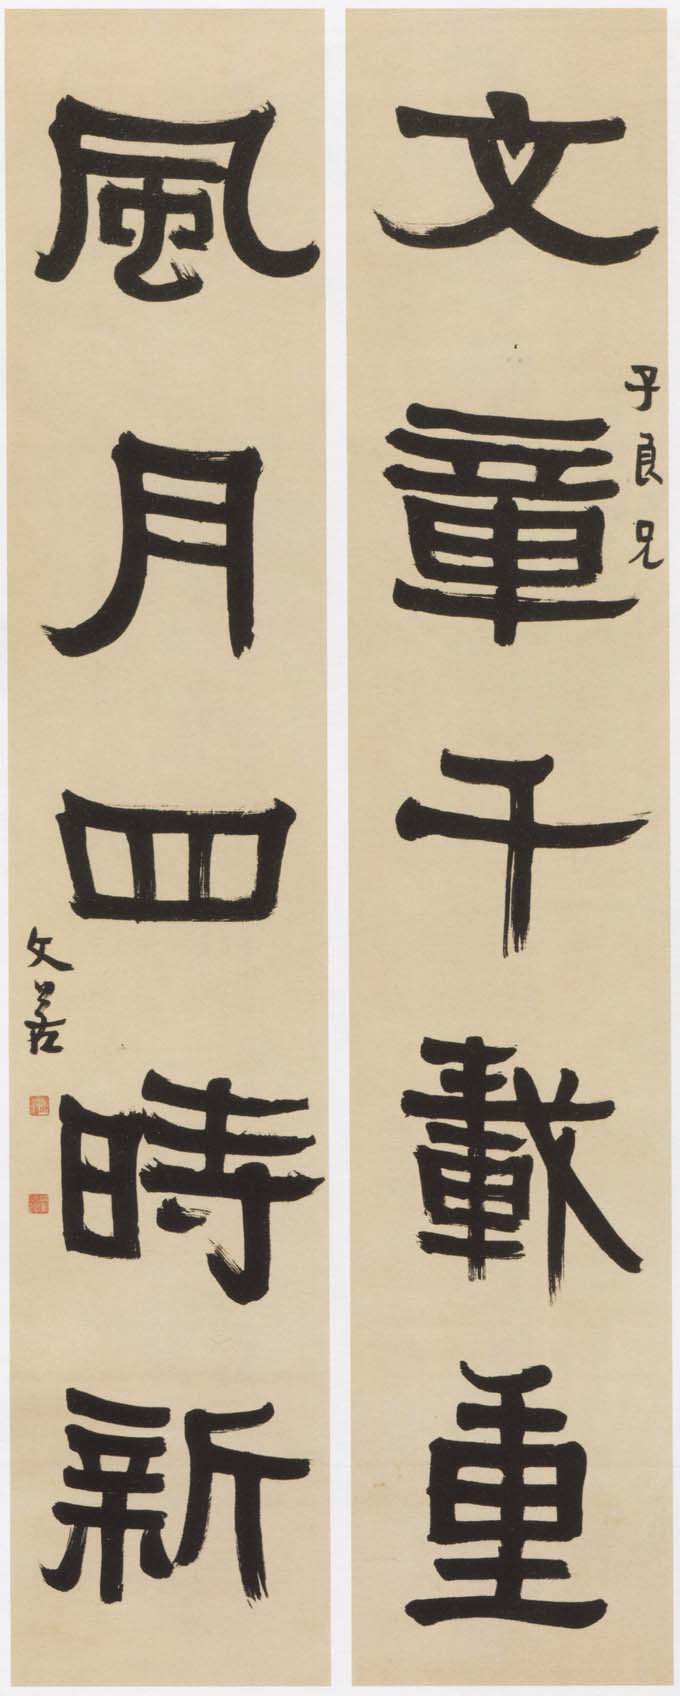 文章千載重
子良兄
風月四時新
文叔